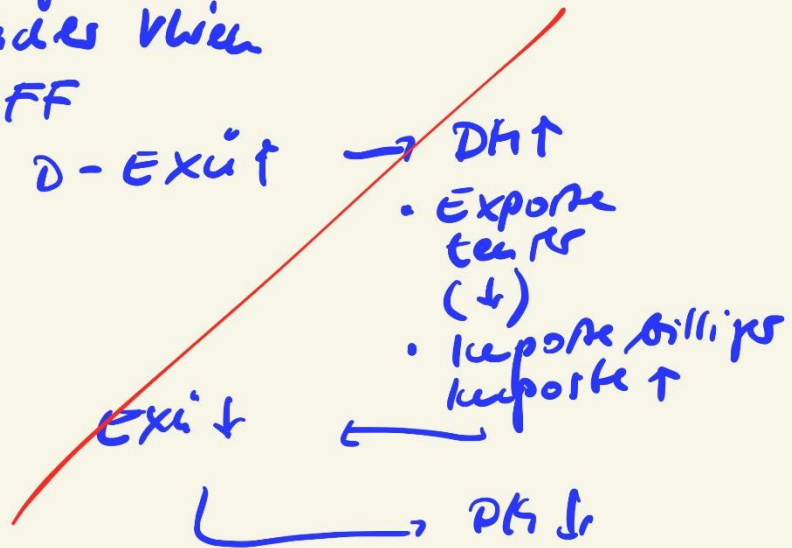 FF
D - EXÜ ↑ → DM ↑
• Exporte
teurer
(↓)
• Importe billiger
Importe ↑
EXÜ ↓ ←
→ DM ↓